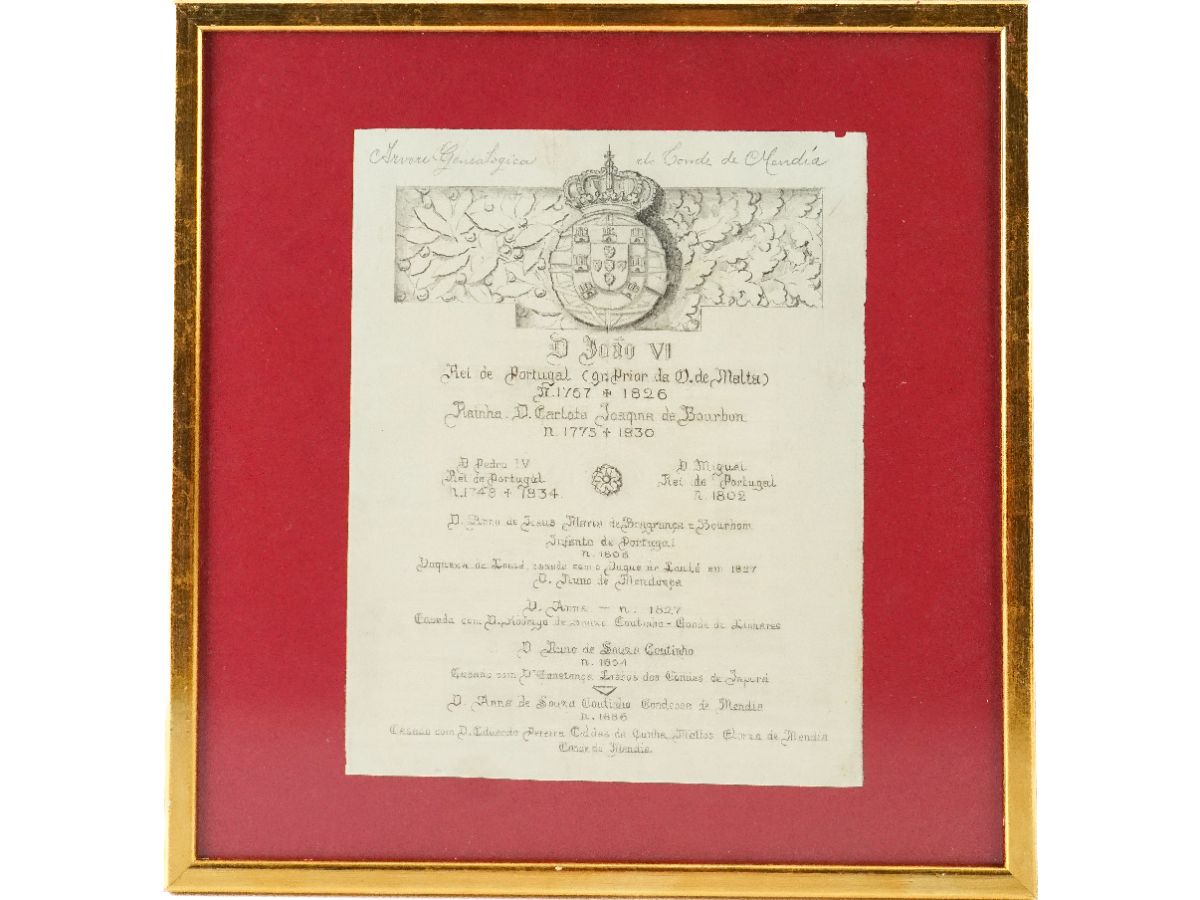 Arvore Genealogica do Conde de Mendía
D João VI
Rei de Portugal (gr. Prior da O. de Malta)
N. 1767 + 1826
Rainha D. Carlota Joaqina de Bourbon
n. 1775 + 1830
D Pedro IV
Rei de Portugal
+ 1834
D Miguel
Rei de Portugal
n. 1802
D. Anna de Jesus Maria de Bragrança e Bourbom
Infanta de Portugal
n. 1806
Duqueza de Loulé, casada com o Duque de Loulé em 1827
D. Nuno de Mendonça
D. Anna - n. 1827
Casada com D. Rodrigo de Souza Coutinho - Conde de Linhares
D Nuno de Souza Coutinho
n. 1854
Casado com Dª Constança Lassos dos Condes de Japurá
D. Anna de Souza Coutinho Condessa de Mendia
n. 1886
Casada com D. Eduardo Pereira Caldas da Cunha Mattos de Mendia
Conde de Mendia.